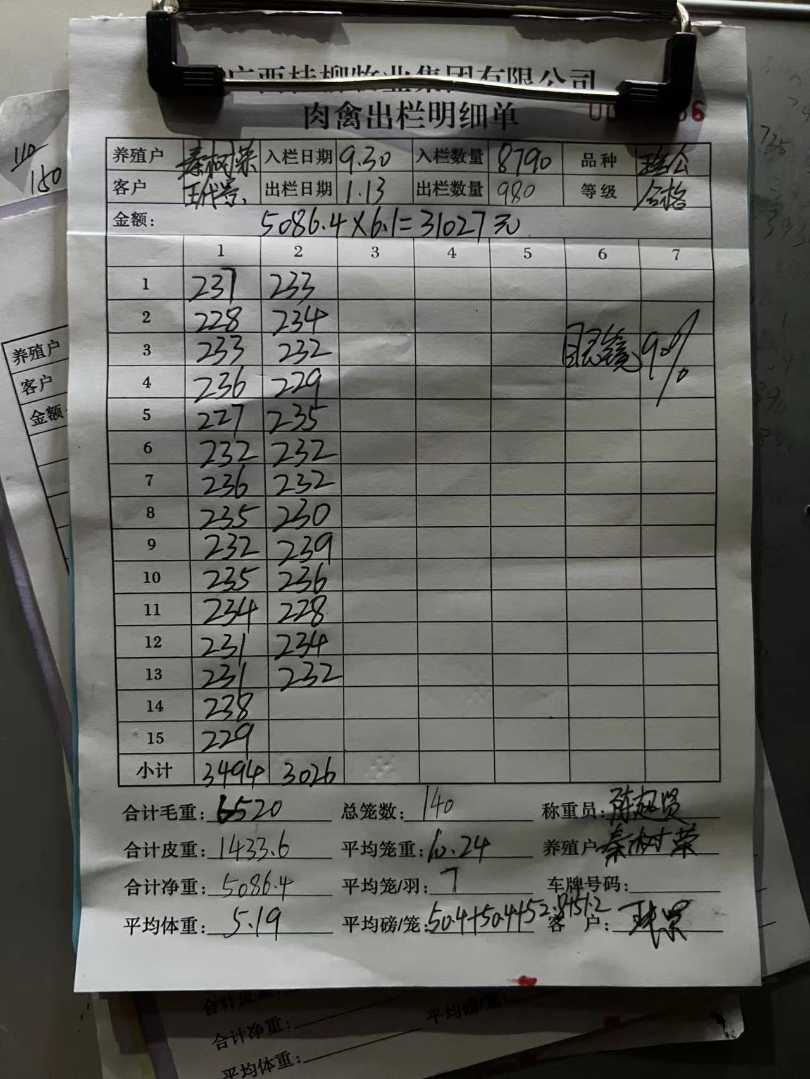 广西桂柳牧业集团有限公司
肉禽出栏明细单
养殖户 秦树荣 入栏日期 9.30 入栏数量 8790 品种
客户 出栏日期 1.13 出栏数量 980 等级 合格
金额: 5086.4×6.1=31027元
1 2 3 4 5 6 7
1 237 233
2 228 234
3 233 232 眼镜90%
4 236 229
5 227 235
6 232 232
7 236 232
8 235 230
9 232 239
10 235 236
11 234 228
12 231 234
13 231 232
14 238
15 229
小计 3494 3026
合计毛重: 6520 总笼数: 140 称重员: 陈超贤
合计皮重: 1433.6 平均笼重: 10.24 养殖户: 秦树荣
合计净重: 5086.4 平均笼/羽: 7 车牌号码:
平均体重: 5.19 平均磅/笼: 50.4+50.4+52.8+51.2 客户:
110
150
养殖户
客户
金额
合计净重:
平均体重: